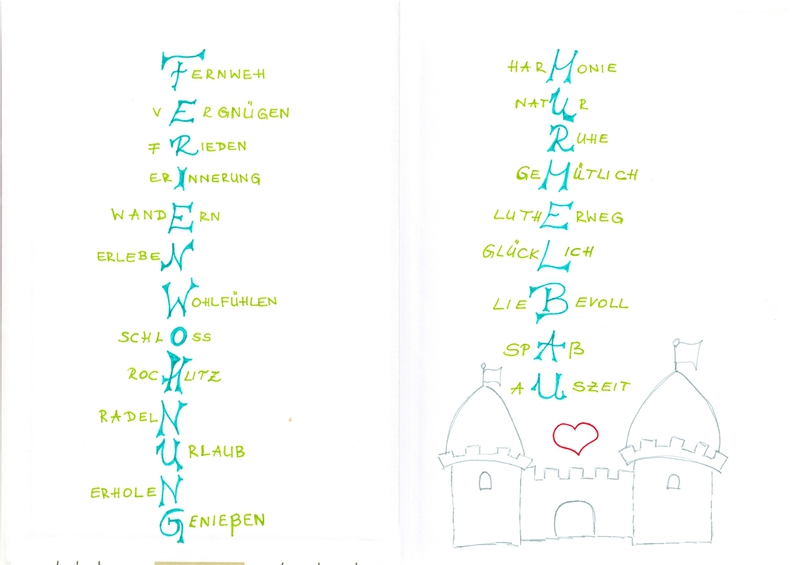 FERNWEH
VERGNÜGEN
FRIEDEN
ERINNERUNG
WANDERN
ERLEBEN
WOHLFÜHLEN
SCHLOSS
ROCHLITZ
RADELN
URLAUB
ERHOLEN
GENIEßEN
HARMONIE
NATUR
RUHE
GEMÜTLICH
LUTHERWEG
GLÜCKLICH
LIEBEVOLL
SPAß
AUSZEIT